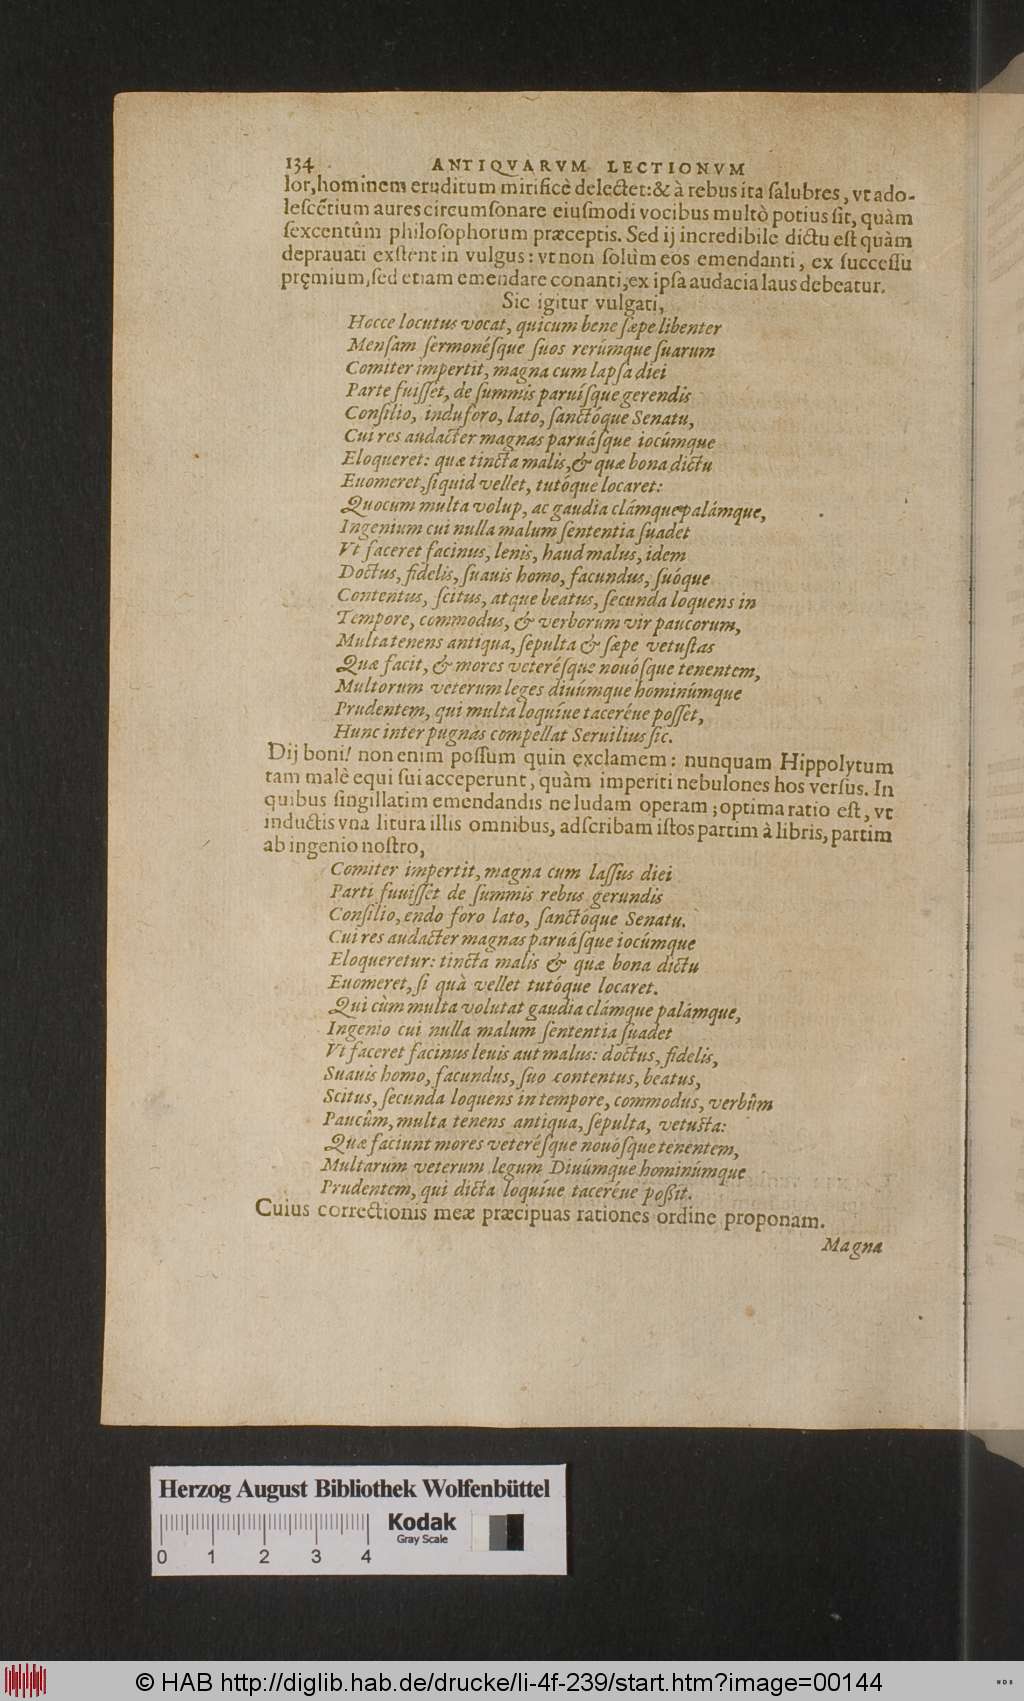 134 ANTIQVARVM LECTIONVM
lor, hominem eruditum mirificè delectet: & à rebus ita salubres, vt ado-
lescẽtium aures circumsonare eiusmodi vocibus multò potius sit, quàm
sexcentûm philosophorum præceptis. Sed ij incredibile dictu est quàm
deprauati exstent in vulgus: vt non solùm eos emendanti, ex successu
pręmium, sed etiam emendare conanti, ex ipsa audacia laus debeatur.
Sic igitur vulgati,
Hocce locutus vocat, quicum bene sæpe libenter
Mensam sermonésque suos rerúmque suarum
Comiter impertit, magna cum lapsa diei
Parte fuisset, de summis paruísque gerendis
Consilio, induforo, lato, sanctóque Senatu,
Cui res audacter magnas paruásque iocúmque
Eloqueret: quæ tincta malis, & quæ bona dictu
Euomeret, siquid vellet, tutóque locaret:
Quocum multa volup, ac gaudia clámque palámque,
Ingenium cui nulla malum sententia suadet
Vt faceret facinus, lenis, haud malus, idem
Doctus, fidelis, suauis homo, facundus, suóque
Contentus, scitus, atque beatus, secunda loquens in
Tempore, commodus, & verborum vir paucorum,
Multa tenens antiqua, sepulta & sæpe vetustas
Quæ facit, & mores veterésque nouósque tenentem,
Multorum veterum leges diuúmque hominúmque
Prudentem, qui multa loquíue taceréue posset,
Hunc inter pugnas compellat Seruilius sic.
Dij boni! non enim possum quin ęxclamem: nunquam Hippolytum
tam malè equi sui acceperunt, quàm imperiti nebulones hos versus. In
quibus singillatim emendandis ne ludam operam; optima ratio est, vt
inductis vna litura illis omnibus, adscribam istos partim à libris, partim
ab ingenio nostro,
Comiter impertit, magna cum lassus diei
Parti fuuisset de summis rebus gerundis
Consilio, endo foro lato, sanctóque Senatu.
Cui res audacter magnas paruásque iocúmque
Eloqueretur: tincta malis & quæ bona dictu
Euomeret, si quà vellet tutóque locaret.
Qui cùm multa volutat gaudia clámque palámque,
Ingenio cui nulla malum sententia suadet
Vt faceret facinus leuis aut malus: doctus, fidelis,
Suauis homo, facundus, suo contentus, beatus,
Scitus, secunda loquens in tempore, commodus, verbûm
Paucûm, multa tenens antiqua, sepulta, vetusta:
Quæ faciunt mores veterésque nouósque tenentem,
Multarum veterum legum Diuúmque hominúmque
Prudentem, qui dicta loquíue taceréue possit.
Cuius correctionis meæ præcipuas rationes ordine proponam.
Magna
Herzog August Bibliothek Wolfenbüttel
Kodak
Gray Scale
0 1 2 3 4
© HAB http://diglib.hab.de/drucke/li-4f-239/start.htm?image=00144